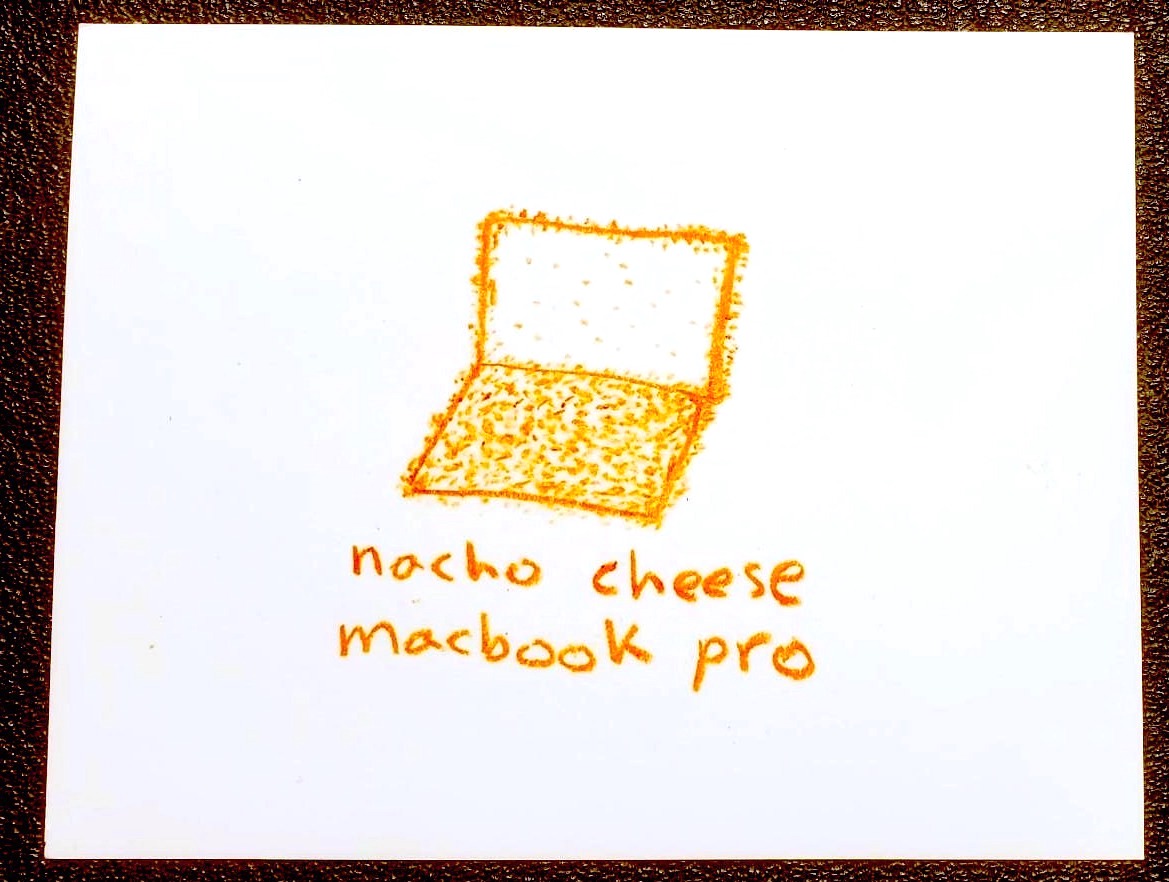 nacho cheese
macbook pro